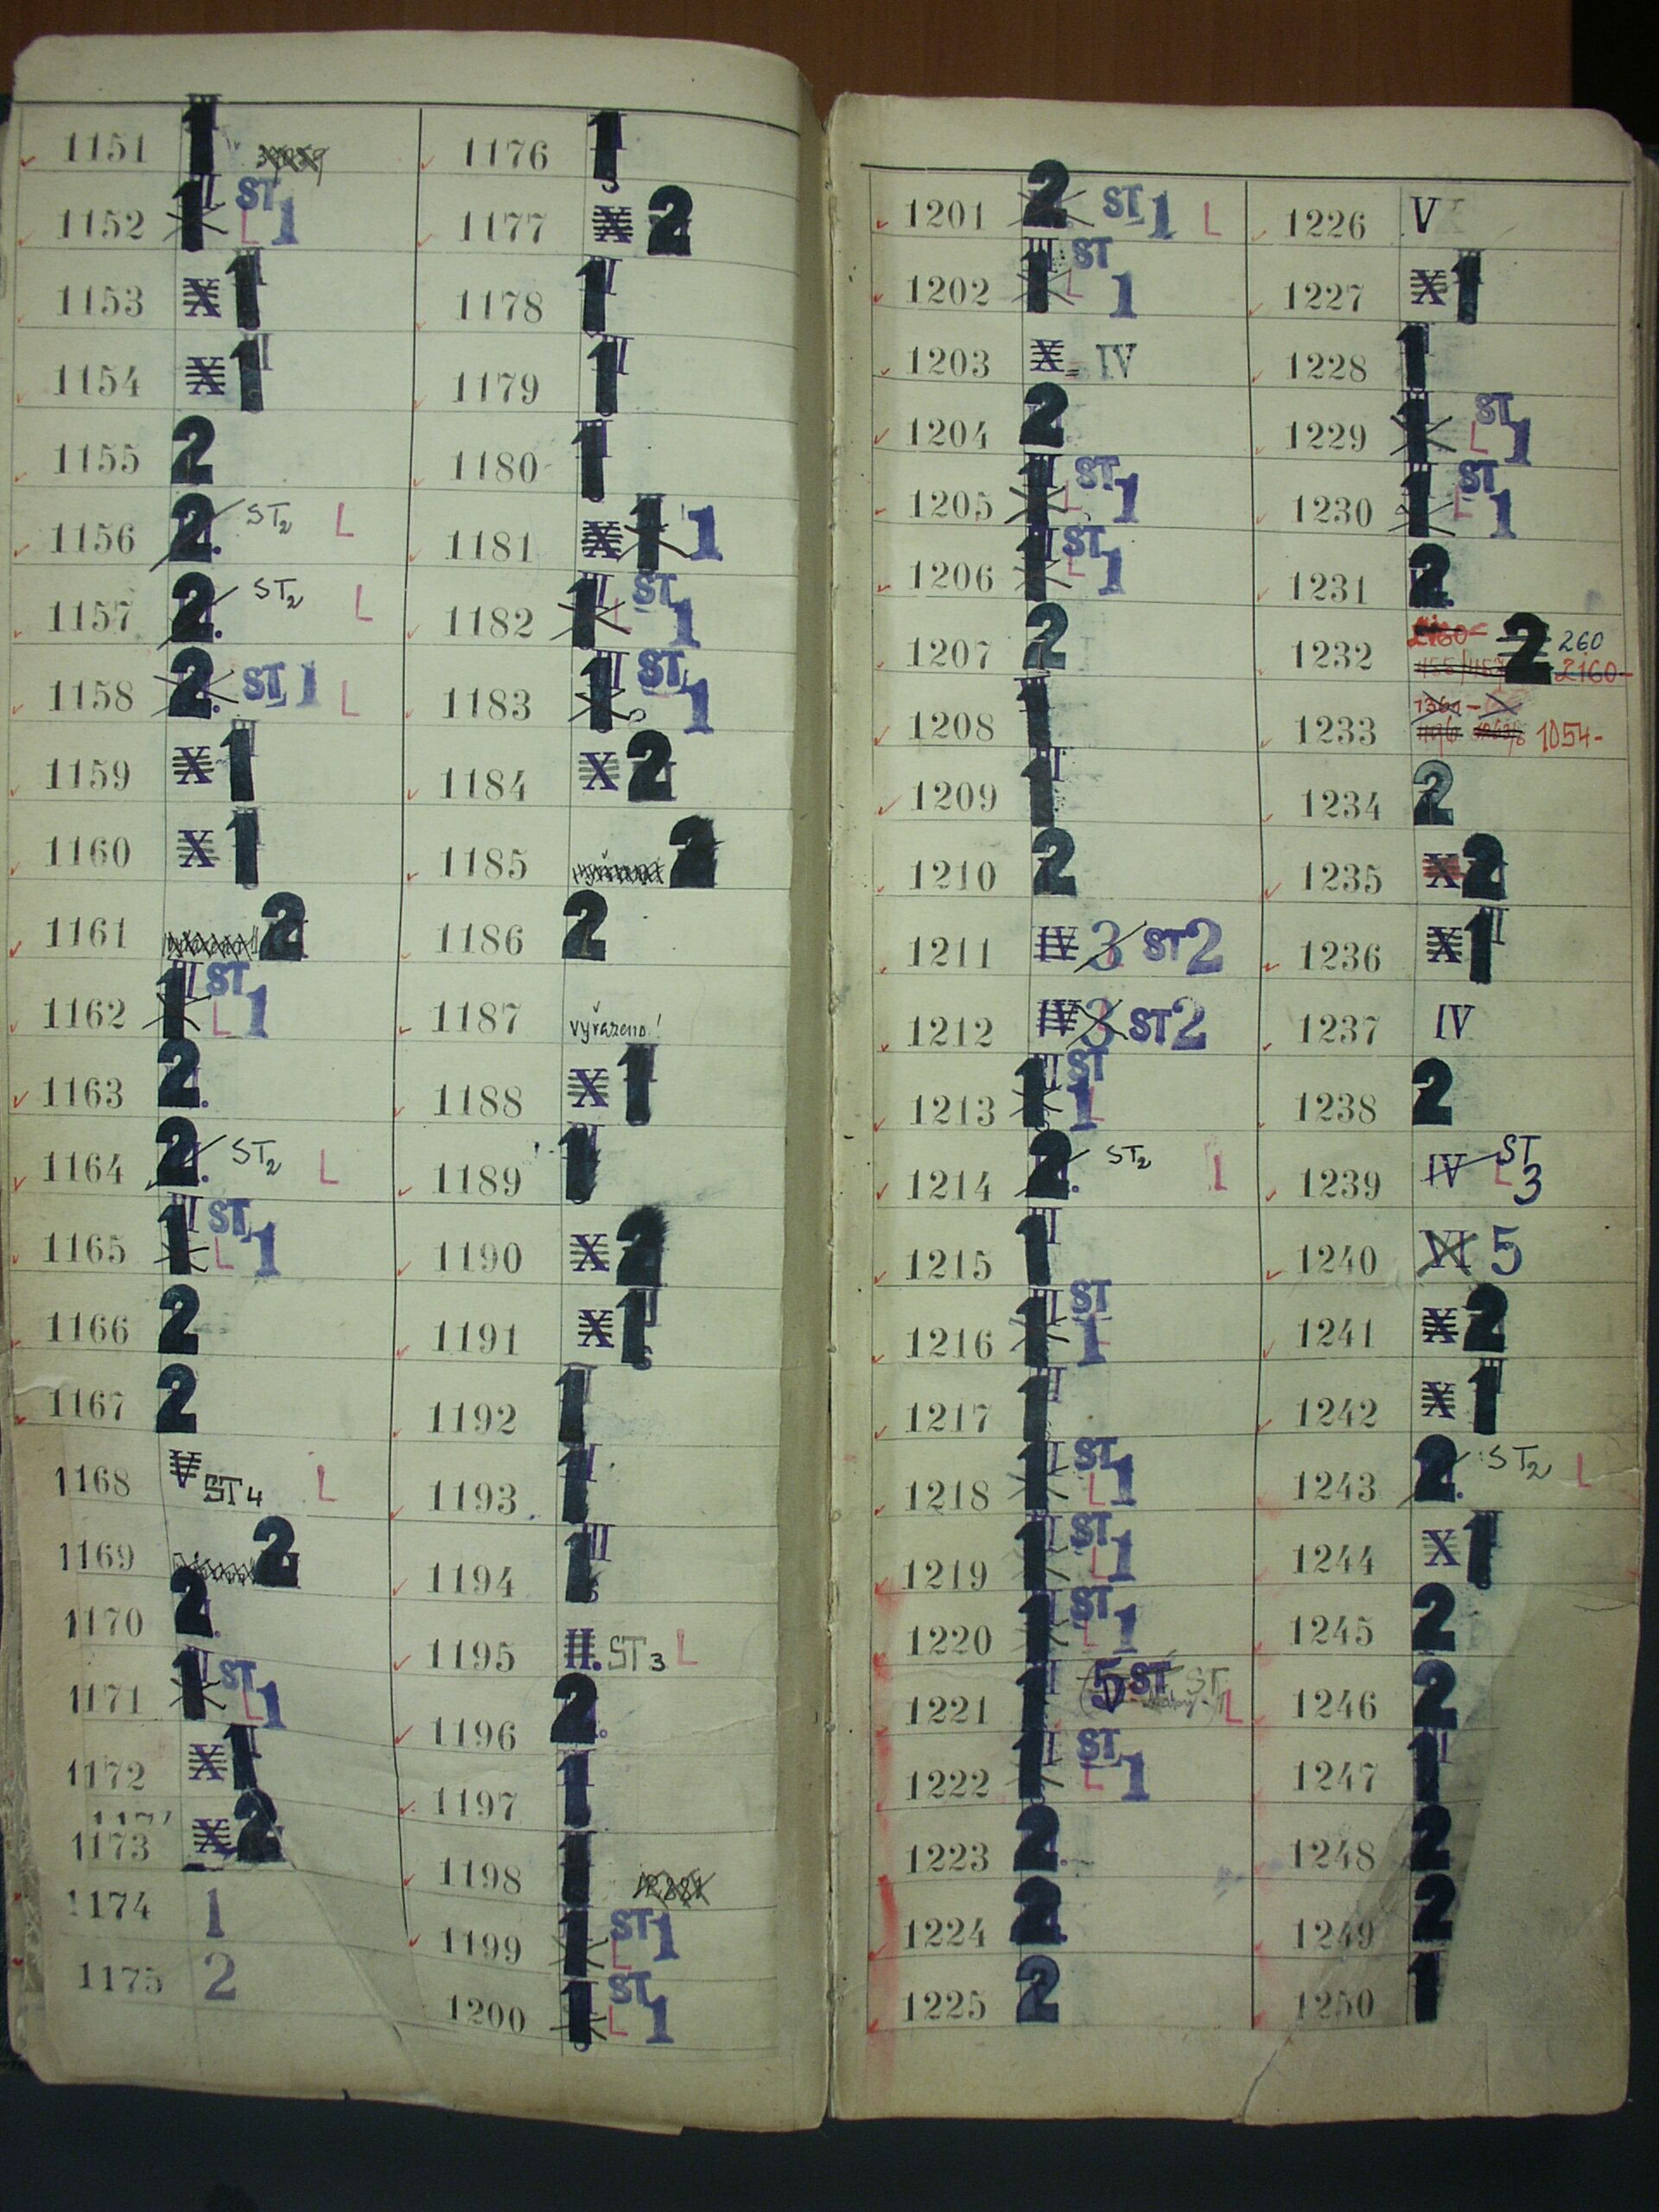 1151 1
1152 1 ST 1 L
1153 X 1
1154 X 1
1155 2
1156 2. ST2 L
1157 2. ST2 L
1158 2. ST 1 L
1159 X 1
1160 X 1
1161 2
1162 1 ST L 1
1163 2.
1164 2. ST2 L
1165 1 ST L 1
1166 2
1167 2
1168 V ST4 L
1169 2
1170 2.
1171 1 ST L 1
1172 X 1
1173 X 2
1174 1
1175 2
1176 1
1177 X 2
1178 1
1179 1
1180 1
1181 X 1 1
1182 1 L ST 1
1183 1 ST 1
1184 X 2
1185 2
1186 2
1187 vyřazeno!
1188 X 1
1189 1
1190 X 2
1191 X 1
1192 1
1193 1
1194 1
1195 II. ST3 L
1196 2.
1197 1
1198 1
1199 1 ST L 1
1200 1 ST L 1
1201 2 ST 1 L
1202 1 L ST 1
1203 X IV
1204 2
1205 1 L ST 1
1206 1 ST L 1
1207 2
1208 1
1209 1
1210 2
1211 IV 3 ST 2
1212 IV 3 ST 2
1213 1 ST L 1
1214 2. ST2 L
1215 1
1216 1 ST L 1
1217 1
1218 1 ST L 1
1219 1 ST L 1
1220 1 ST L 1
1221 1 5 ST ST L
1222 1 ST L 1
1223 2.
1224 2.
1225 2
1226 V
1227 X 1
1228 1
1229 1 ST L 1
1230 1 ST L 1
1231 2.
1232 2160- 2 260
2160-
1233 1054-
1234 2
1235 X 2
1236 X 1
1237 IV
1238 2
1239 IV ST L 3
1240 VI 5
1241 X 2
1242 X 1
1243 2. ST2 L
1244 X 1
1245 2
1246 2
1247 1
1248 2
1249 2
1250 1